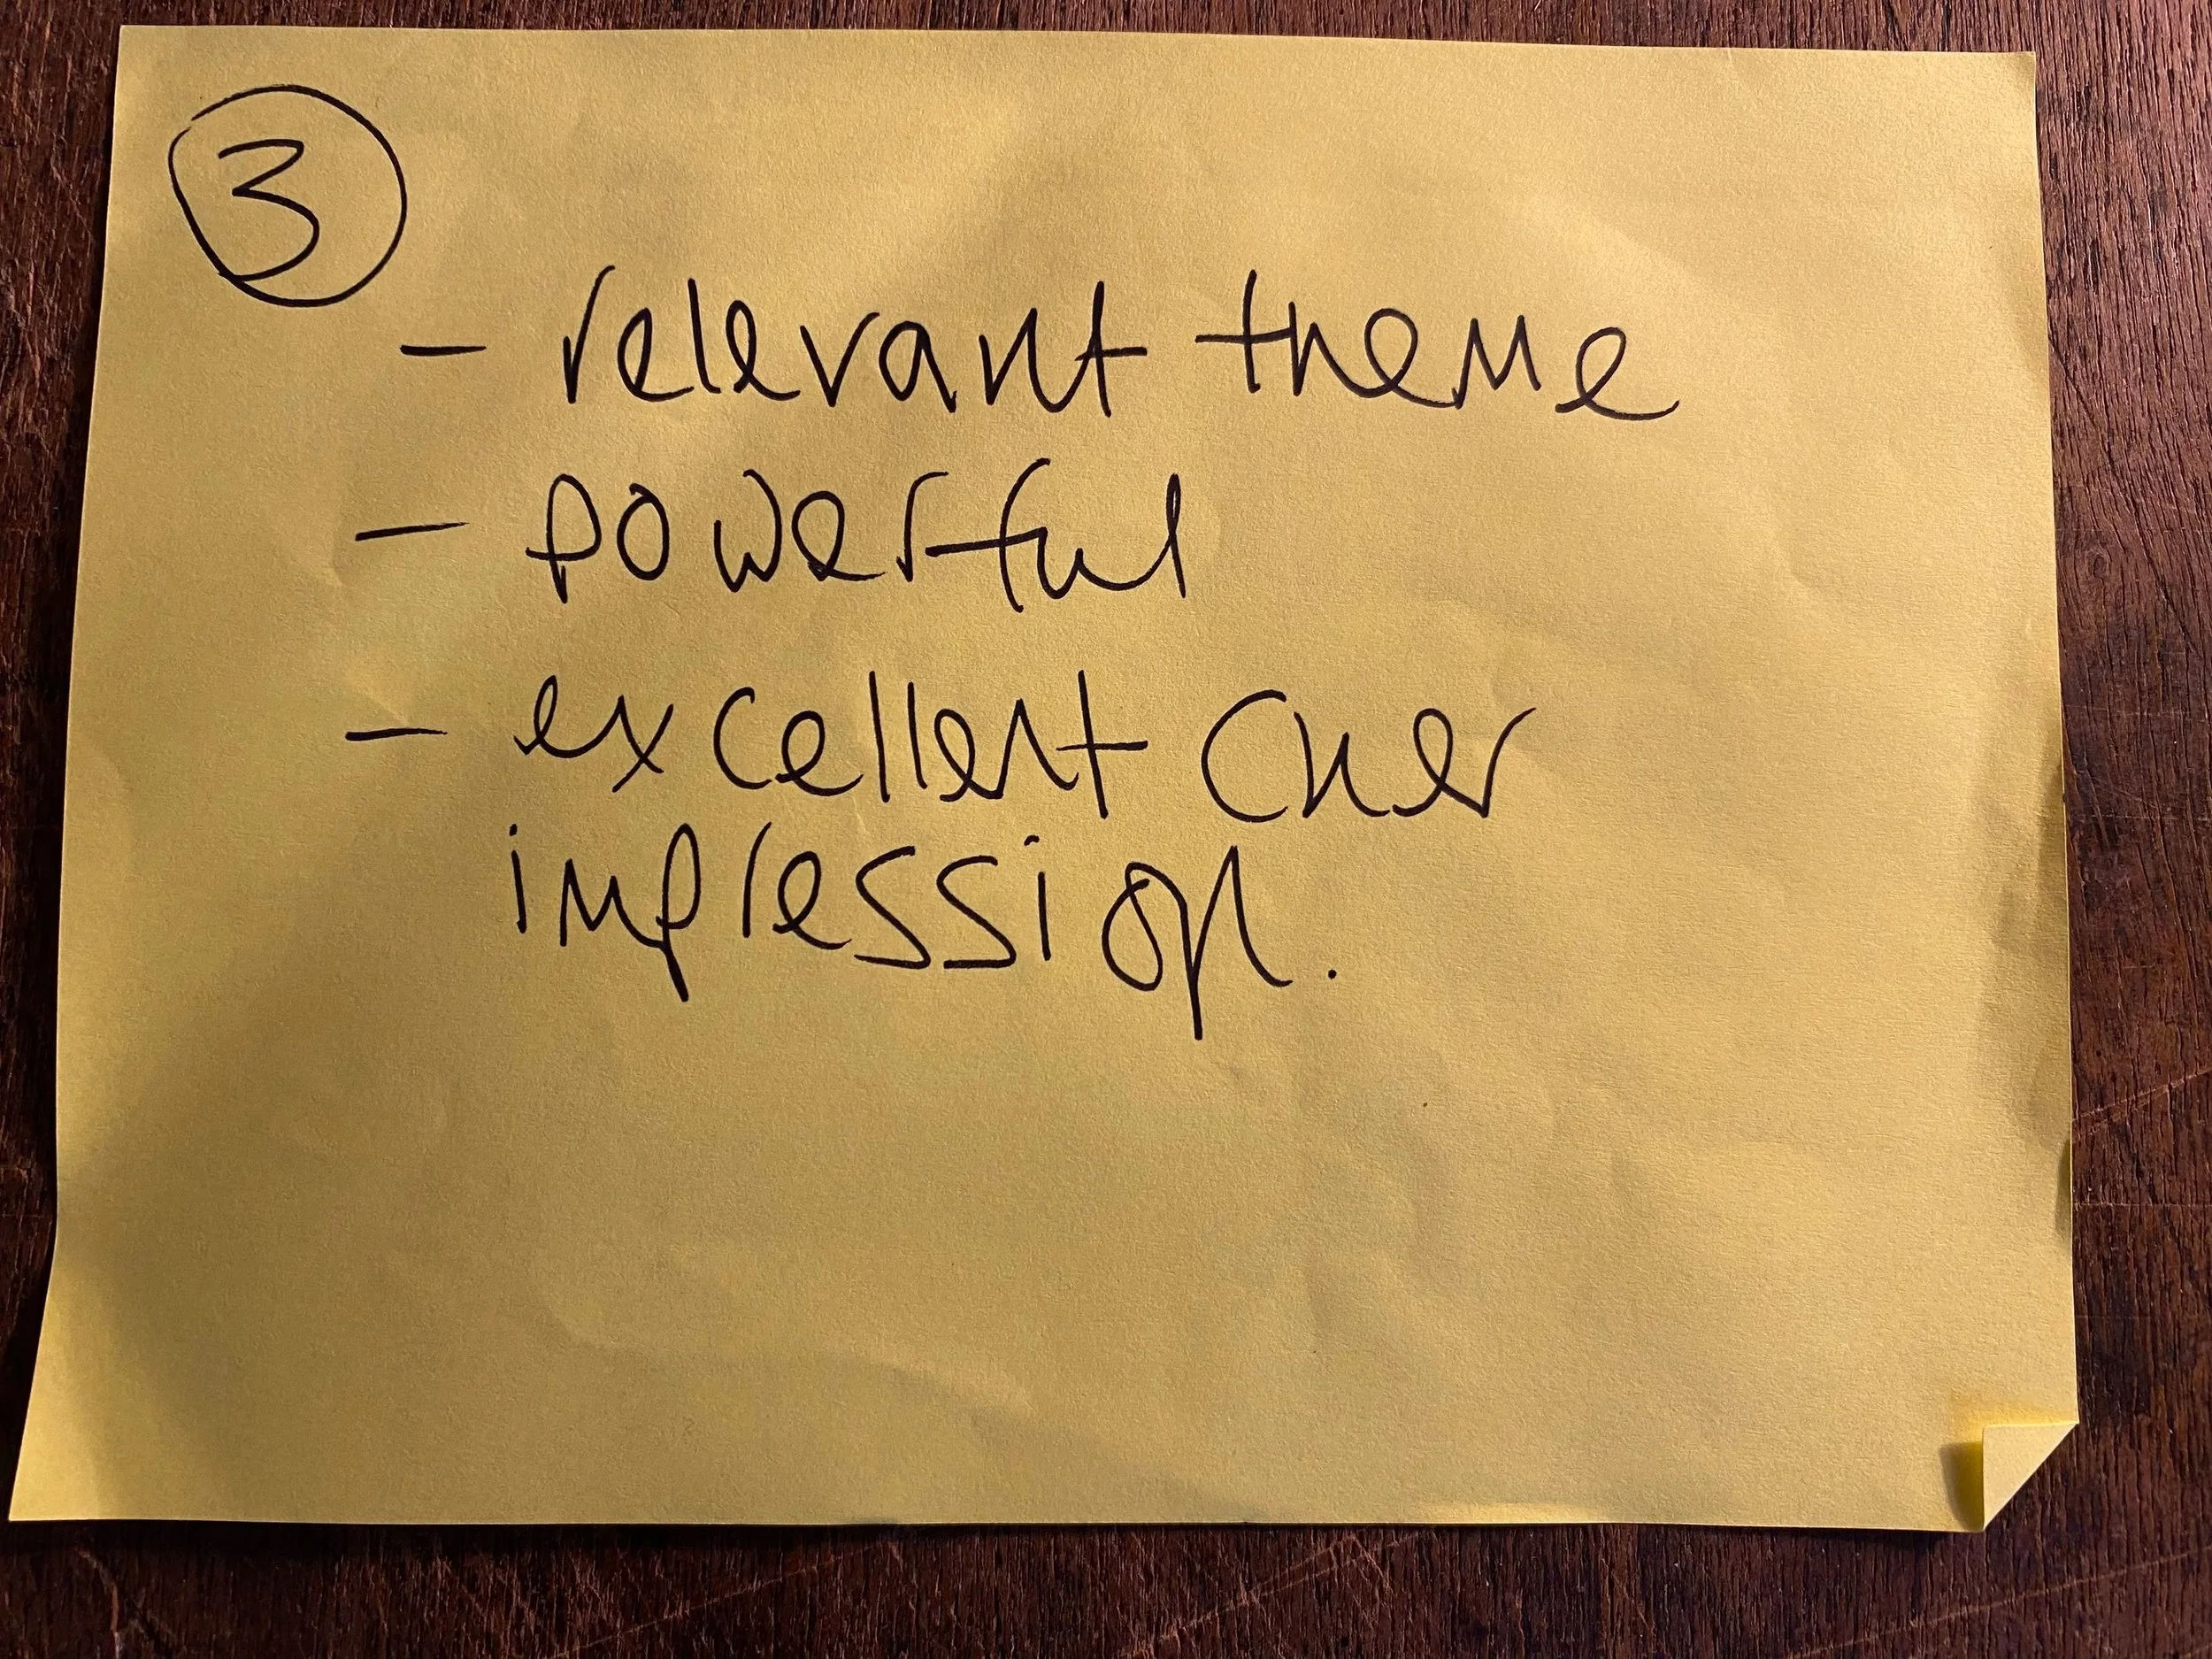 3
- relevant theme
- powerful
- excellent Cher
impression.